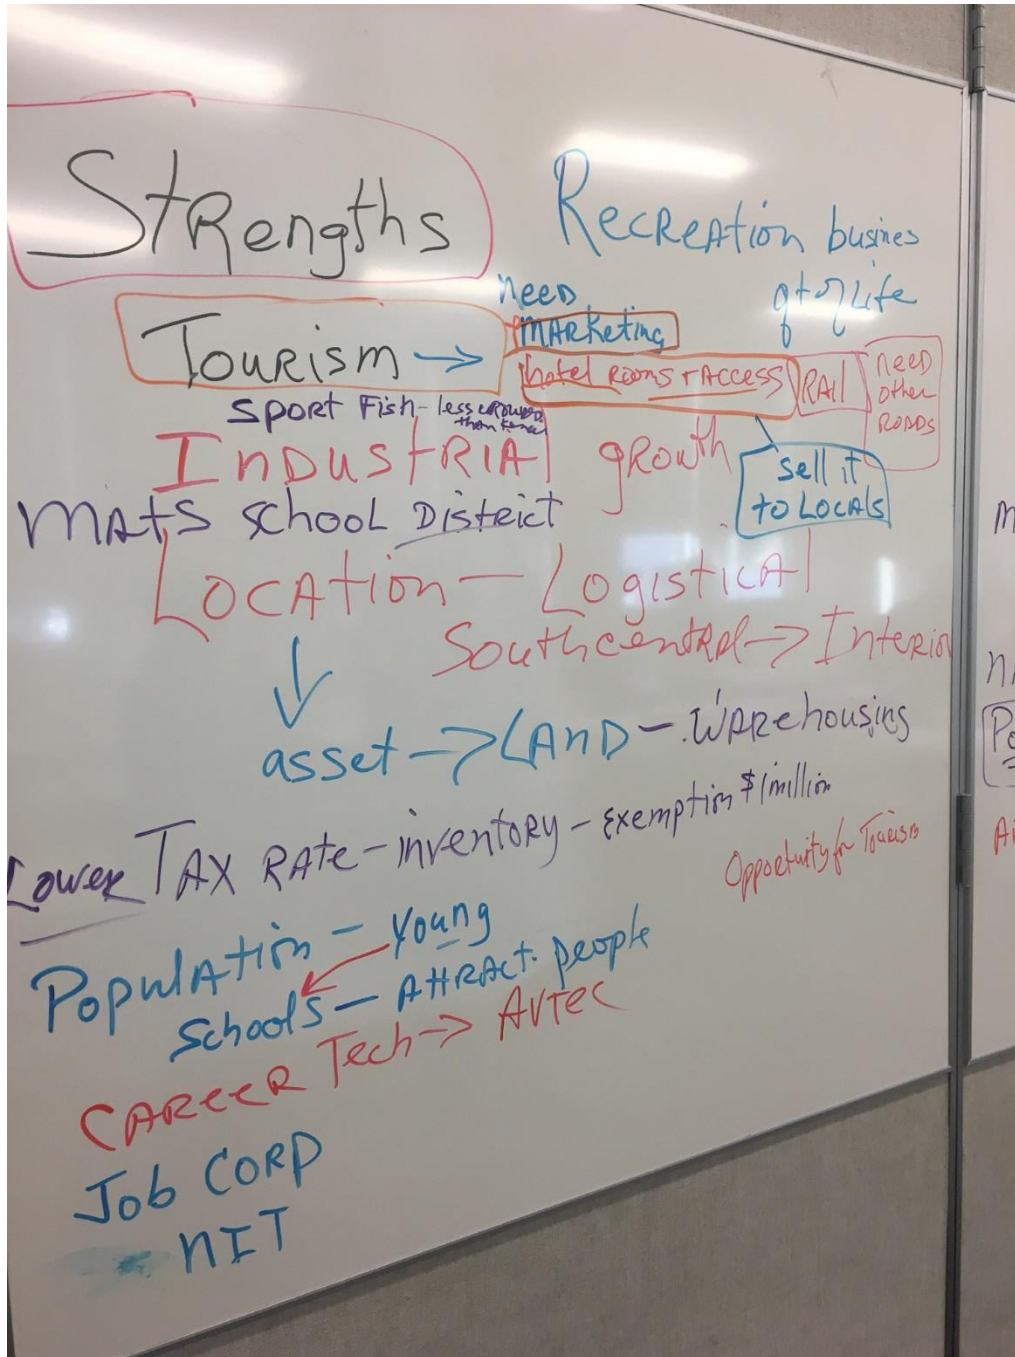 Strengths
Recreation busines
qt of Life
need
marketing
Tourism →
hotel rooms + Access
RAIL
need
other
ROADS
Sport Fish - less crowded
than
Industrial growth
sell it
to LOCALS
MAtS School District
Location - Logistical
Southcentral → Interior
asset → LAND - Warehousing
Lower Tax Rate - inventory - exemption $1million
Opportuity for Tourism
Population - young
Schools - Attract people
CAREER Tech → AVTEC
Job CORP
NIT